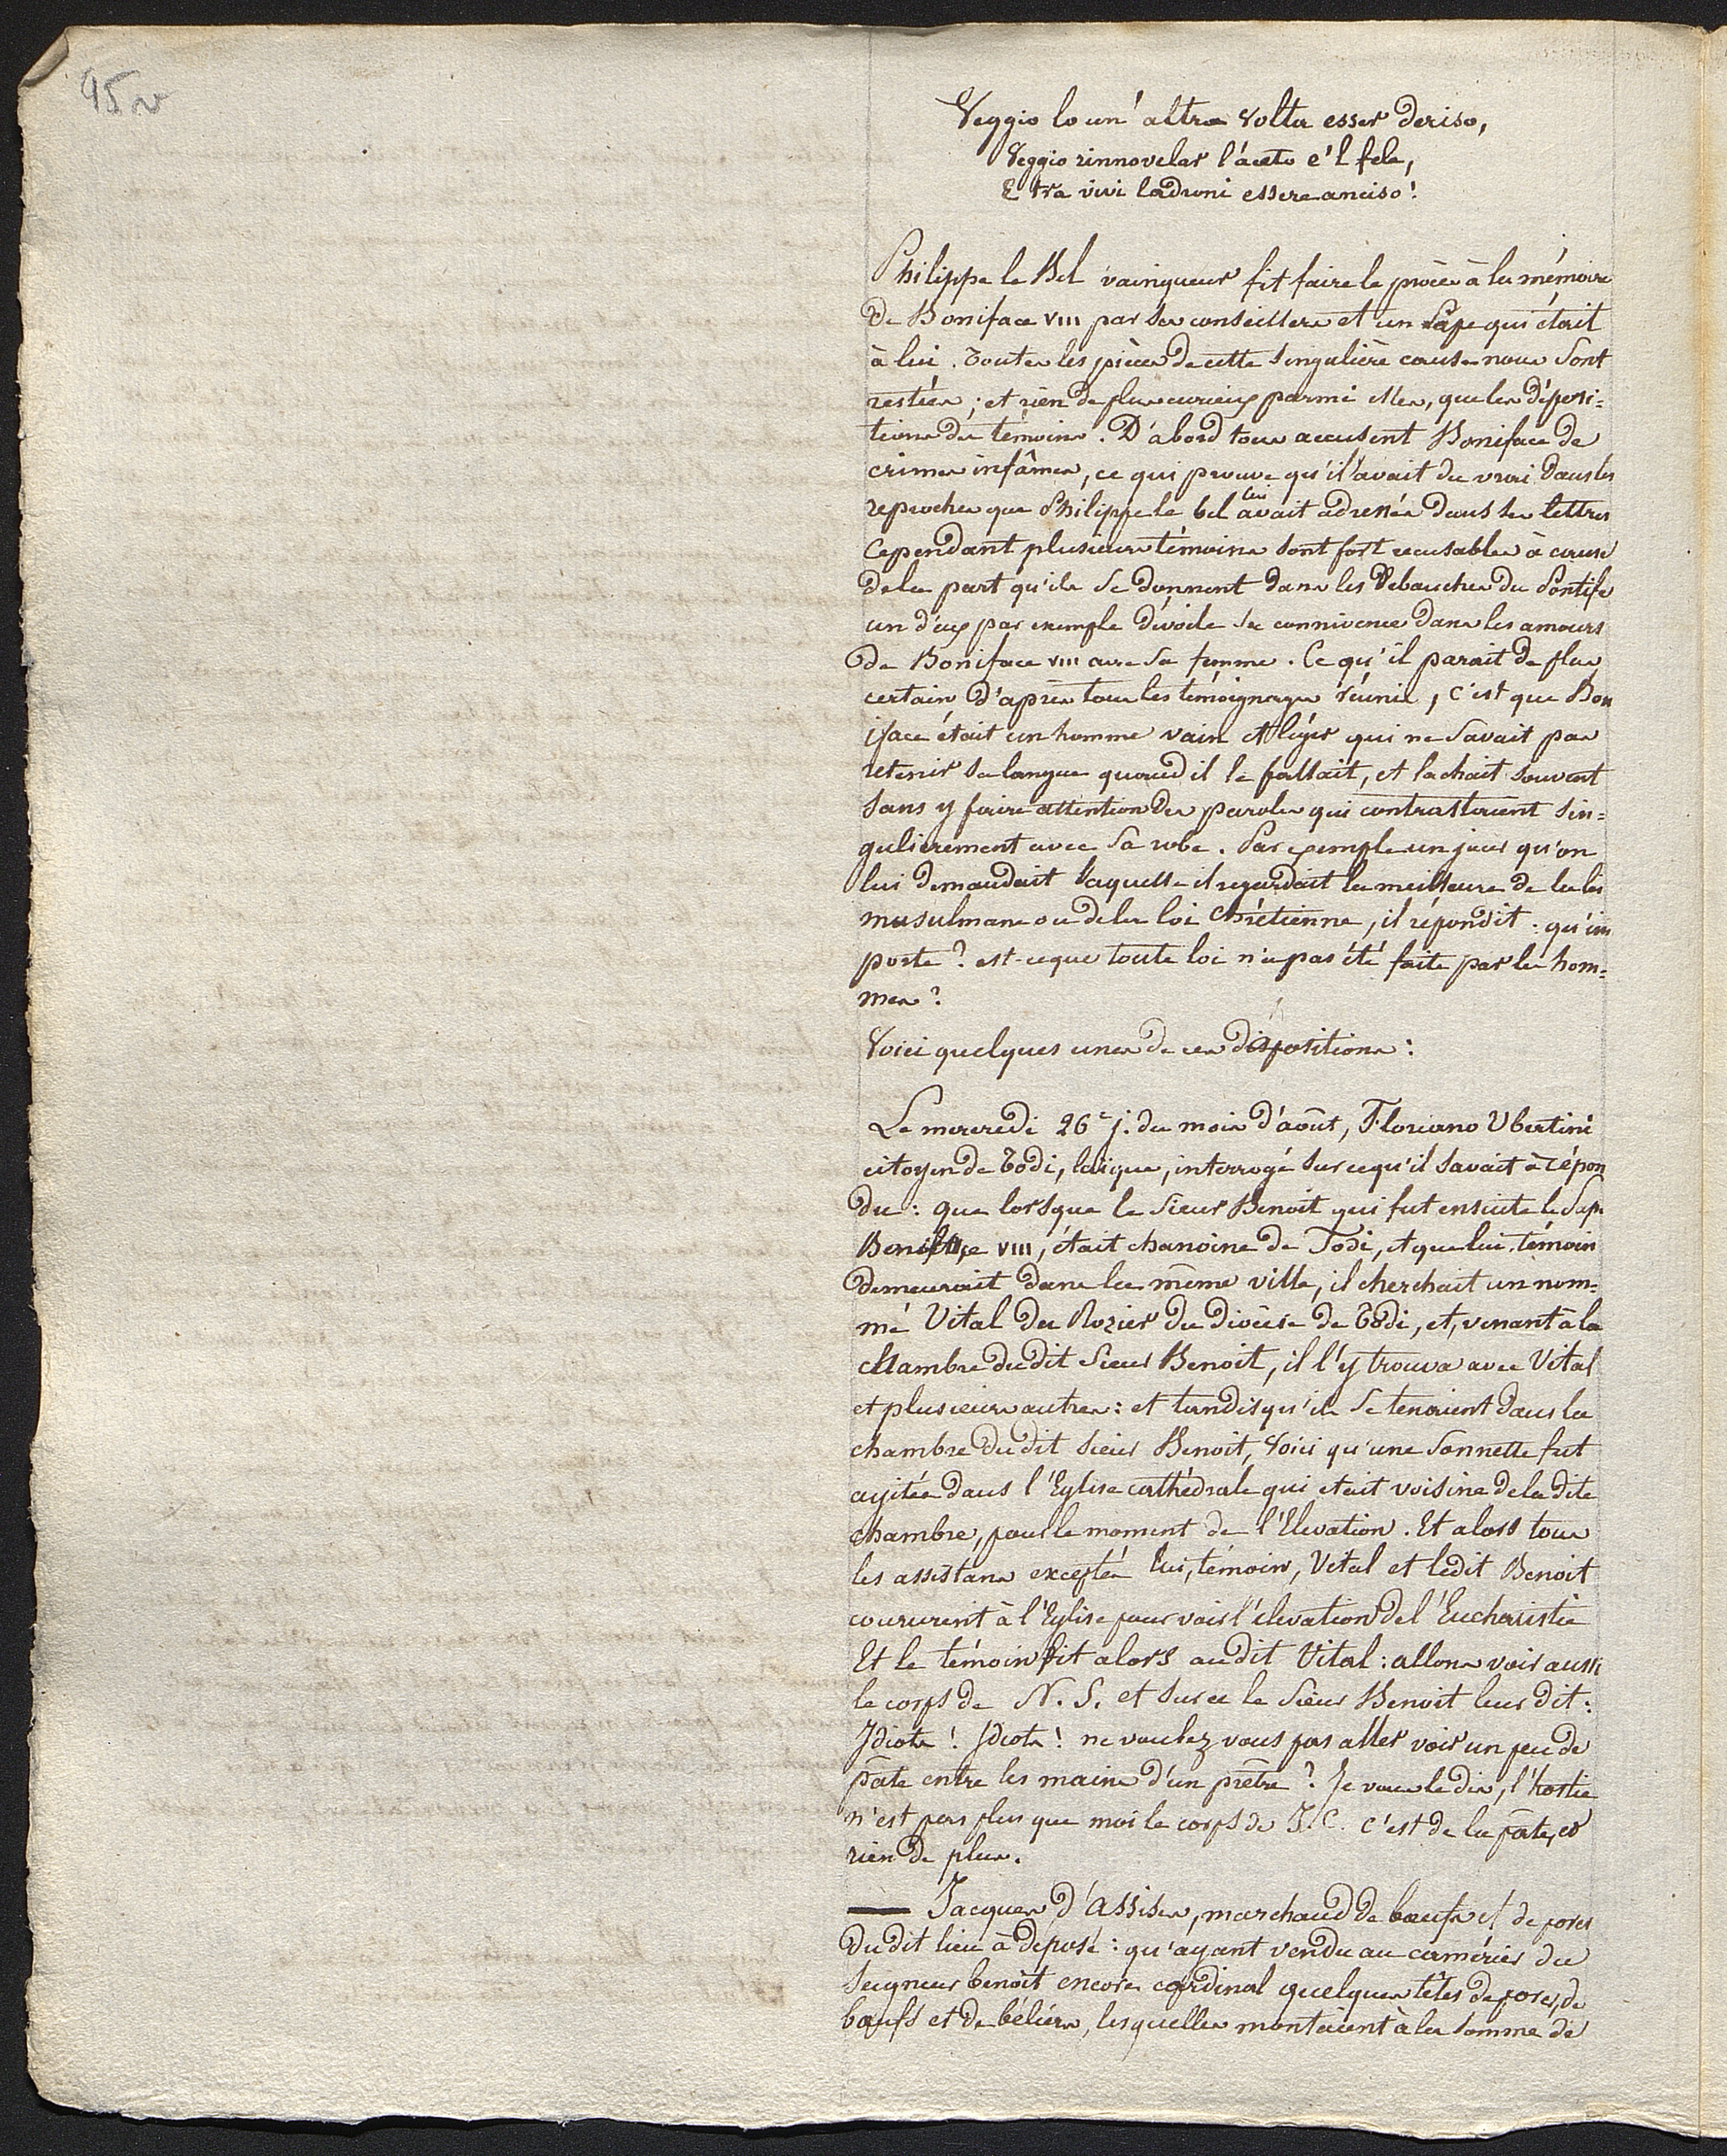 95 v
Veggio lo un' altra volta esser deriso,
Veggio rinnovelar l'áceto e'l fele,
E tra vivi ladroni essere anciso!
Philippe le Bel vainqueur fit faire le procès à la mémoire
de Boniface VIII par ses conseillers et un Pape qui était
à lui. Toutes les pièces de cette singulière cause nous sont
restées; et rien de plus curieux parmi elles, que les déposi=
tions des témoins. D'abord tous accusent Boniface de
crimes infâmes, ce qui prouve qu'il avait du vrai dans les
reproches que Philippe le bel lui avait adressés dans ses lettres
Cependant plusieurs témoins sont fort recusables à cause
de la part qu'ils se donnent dans les débauches du Pontife
un d'eux par exemple dévoile sa connivence dans les amours
de Boniface VIII avec sa femme. Ce qu'il parait de plus
certain d'après tous les témoignages réunis, c'est que Bon
iface était un homme vain et léger qui ne savait pas
retenir sa langue quand il le fallait, et lachait souvent
sans y faire attention des paroles qui contrastaient sin=
gulierement avec sa robe. Par exemple un jour qu'on
lui demandait laquelle il regardait la meilleure de la loi
musulmane ou de la loi Chrétienne, il répondit: qu'im
porte? est-ce que toute loi n'a pas été faite par les hom=
mes?
Voici quelques unes de ces dispositions:
Le mercredi 26e j. du mois d'août, Floriano Ubertini
citoyen de Todi, laïque, interrogé sur ce qu'il savait à répon
du: que lorsque le Sieur Benoit qui fut ensuite le Pape
Boniface VIII, était chanoine de Todi, et que lui témoin
demeurait dans la même ville, il cherchait un nom=
mé Vital du Rozier du diocèse de Todi, et, venant à la
chambre du dit Sieur Benoit, il l'y trouva avec Vital
et plusieurs autres: et tandis qu'ils se tenaient dans la
chambre du dit Sieur Benoit, voici qu'une sonnette fut
agitée dans l'Eglise cathédrale qui etait voisine de la dite
chambre, pour le moment de l'Elevation. Et alors tous
les assistans excepté lui, témoin, Vital et ledit Benoit
coururent à l'Eglise pour voir l'élevation de l'Eucharistie
Et le témoin dit alors au dit Vital: allons voir aussi
le corps de N. S. et sur ce le Sieur Benoit leur dit:
Idiots! Idiots! ne voulez vous pas aller voir un peu de
pâte entre les mains d'un prêtre? Je vous le dis, l'hostie
n'est pas plus que moi le corps de J. C. c'est de la pâte, et
rien de plus.
— Jacques d'Assises, marchand de bœufs et de porcs
du dit lieu à déposé: qu'ayant vendu au camérier du
Seigneur benoit encore cardinal quelques têtes de porcs, de
bœufs et de béliers, lesquelles montaient à la somme de